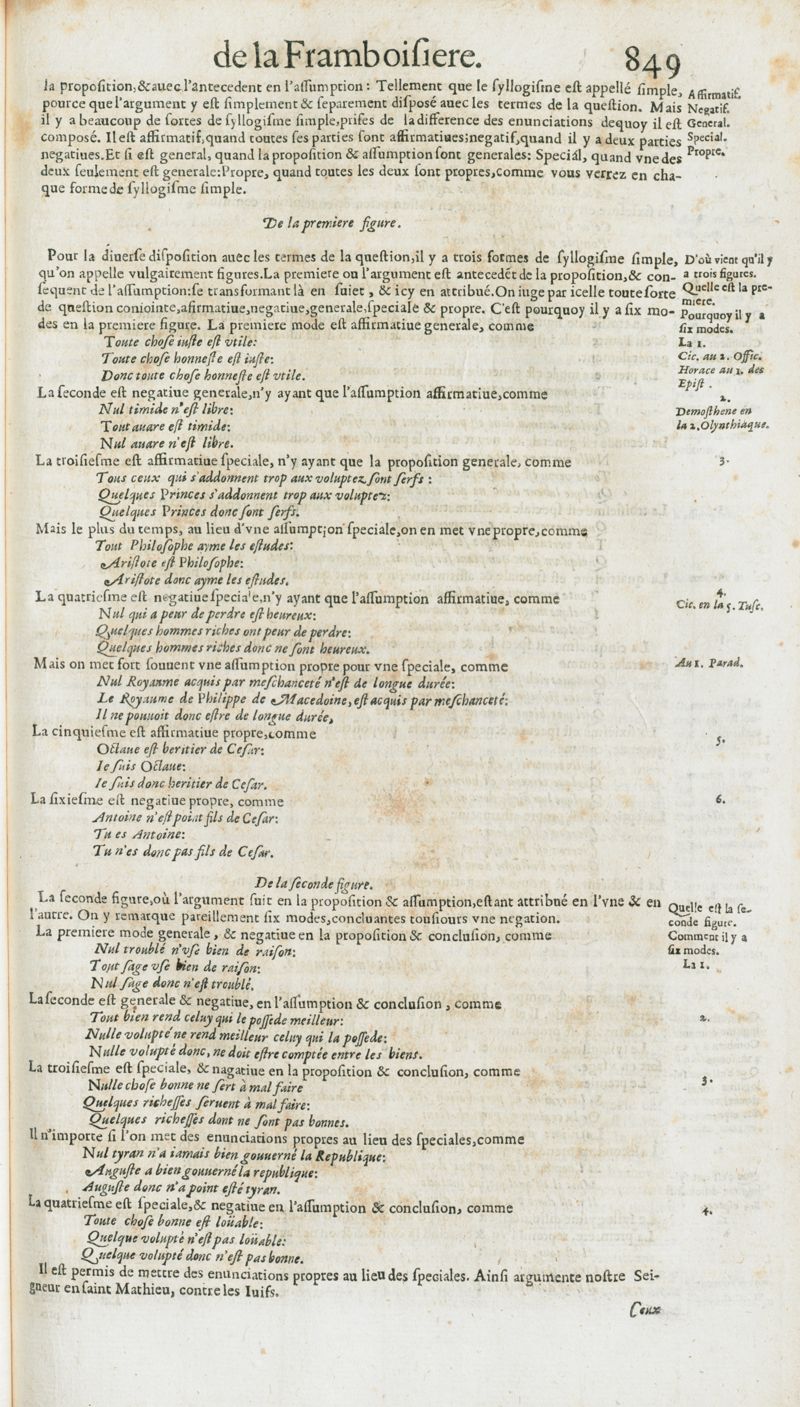 de la Framboisiere. 849
la proposition, & auec l'antecedent en l'assumption: Tellement que le syllogisme est appellé simple,
pource que l'argument y est simplement & separement disposé auec les termes de la question. Mais
il y a beaucoup de sortes de syllogisme simple, prises de la difference des enunciations dequoy il est
composé. Il est affirmatif, quand toutes ses parties sont affirmatiues; negatif, quand il y a deux parties
negatiues. Et si est general, quand la proposition & assumption sont generales: Speciál, quand vne des
deux seulement est generale: Propre, quand toutes les deux sont propres, comme vous verrez en cha-
que forme de syllogisme simple.
Affirmatif.
Negatif.
General.
Special.
Propre.
De la premiere figure.
Pour la diuerse disposition auec les termes de la question, il y a trois formes de syllogisme simple,
qu'on appelle vulgairement figures. La premiere ou l'argument est antecedét de la proposition, & con-
sequent de l'assumption: se transformant là en suiet, & icy en attribué. On iuge par icelle toute sorte
de question coniointe, afirmatiue, negatiue, generale, speciale & propre. C'est pourquoy il y a six mo-
des en la premiere figure. La premiere mode est affirmatiue generale, comme
D'où vient qu'il y
a trois figures.
Quelle est la pre-
miere.
Pourquoy il y a
six modes.
Toute chose iuste est vtile:
Toute chose honneste est iuste:
Donc toute chose honneste est vtile.
La 1.
Cic. au 2. Offic.
Horace au 1. des
Epist.
La seconde est negatiue generale, n'y ayant que l'assumption affirmatiue, comme
Nul timide n'est libre:
Tout auare est timide:
Nul auare n'est libre.
2.
Demosthene en
la 2. Olynthiaque.
La troisiesme est affirmatiue speciale, n'y ayant que la proposition generale, comme
3.
Tous ceux qui s'addonnent trop aux voluptez sont serfs:
Quelques Princes s'addonnent trop aux voluptez:
Quelques Princes donc sont serfs.
Mais le plus du temps, au lieu d'vne assumption speciale, on en met vne propre, comme
Tout Philosophe ayme les estudes:
Aristote est Philosophe:
Aristote donc ayme les estudes.
La quatriesme est negatiue speciale, n'y ayant que l'assumption affirmatiue, comme
4.
Cic. en la 5. Tusc.
Nul qui a peur de perdre est heureux:
Quelques hommes riches ont peur de perdre:
Quelques hommes riches donc ne sont heureux.
Mais on met fort souuent vne assumption propre pour vne speciale, comme
Au 1. Parad.
Nul Royaume acquis par meschanceté n'est de longue durée:
Le Royaume de Philippe de Macedoine, est acquis par meschanceté:
Il ne pouuoit donc estre de longue durée,
La cinquiesme est affirmatiue propre, comme
5.
Octaue est heritier de Cesar:
Ie suis Octaue:
Ie suis donc heritier de Cesar.
La sixiesme est negatiue propre, comme
6.
Antoine n'est point fils de Cesar:
Tu es Antoine:
Tu n'es donc pas fils de Cesar.
De la seconde figure.
La seconde figure, où l'argument suit en la proposition & assumption, estant attribué en l'vne & en
l'autre. On y remarque pareillement six modes, concluantes tousiours vne negation.
La premiere mode generale, & negatiue en la proposition & conclusion, comme
Quelle est la se-
conde figure.
Comment il y a
six modes.
La 1.
Nul troublé n'vse bien de raison:
Tout sage vse bien de raison:
Nul sage donc n'est troublé.
La seconde est generale & negatiue, en l'assumption & conclusion, comme
2.
Tout bien rend celuy qui le possede meilleur:
Nulle volupté ne rend meilleur celuy qui la possede:
Nulle volupté donc, ne doit estre comptée entre les biens.
La troisiesme est speciale, & nagatiue en la proposition & conclusion, comme
3.
Nulle chose bonne ne sert à mal faire
Quelques richesses seruent à mal faire:
Quelques richesses dont ne sont pas bonnes.
Il n'importe si l'on met des enunciations propres au lieu des speciales, comme
Nul tyran n'a iamais bien gouuerné la Republique:
Auguste a bien gouuerné la republique:
Auguste donc n'a point esté tyran.
La quatriesme est speciale, & negatiue en l'assumption & conclusion, comme
4.
Toute chose bonne est loüable:
Quelque volupté n'est pas loüable:
Quelque volupté donc n'est pas bonne.
Il est permis de mettre des enunciations propres au lieu des speciales. Ainsi argumente nostre Sei-
gneur en saint Mathieu, contre les Iuifs.
Ceux